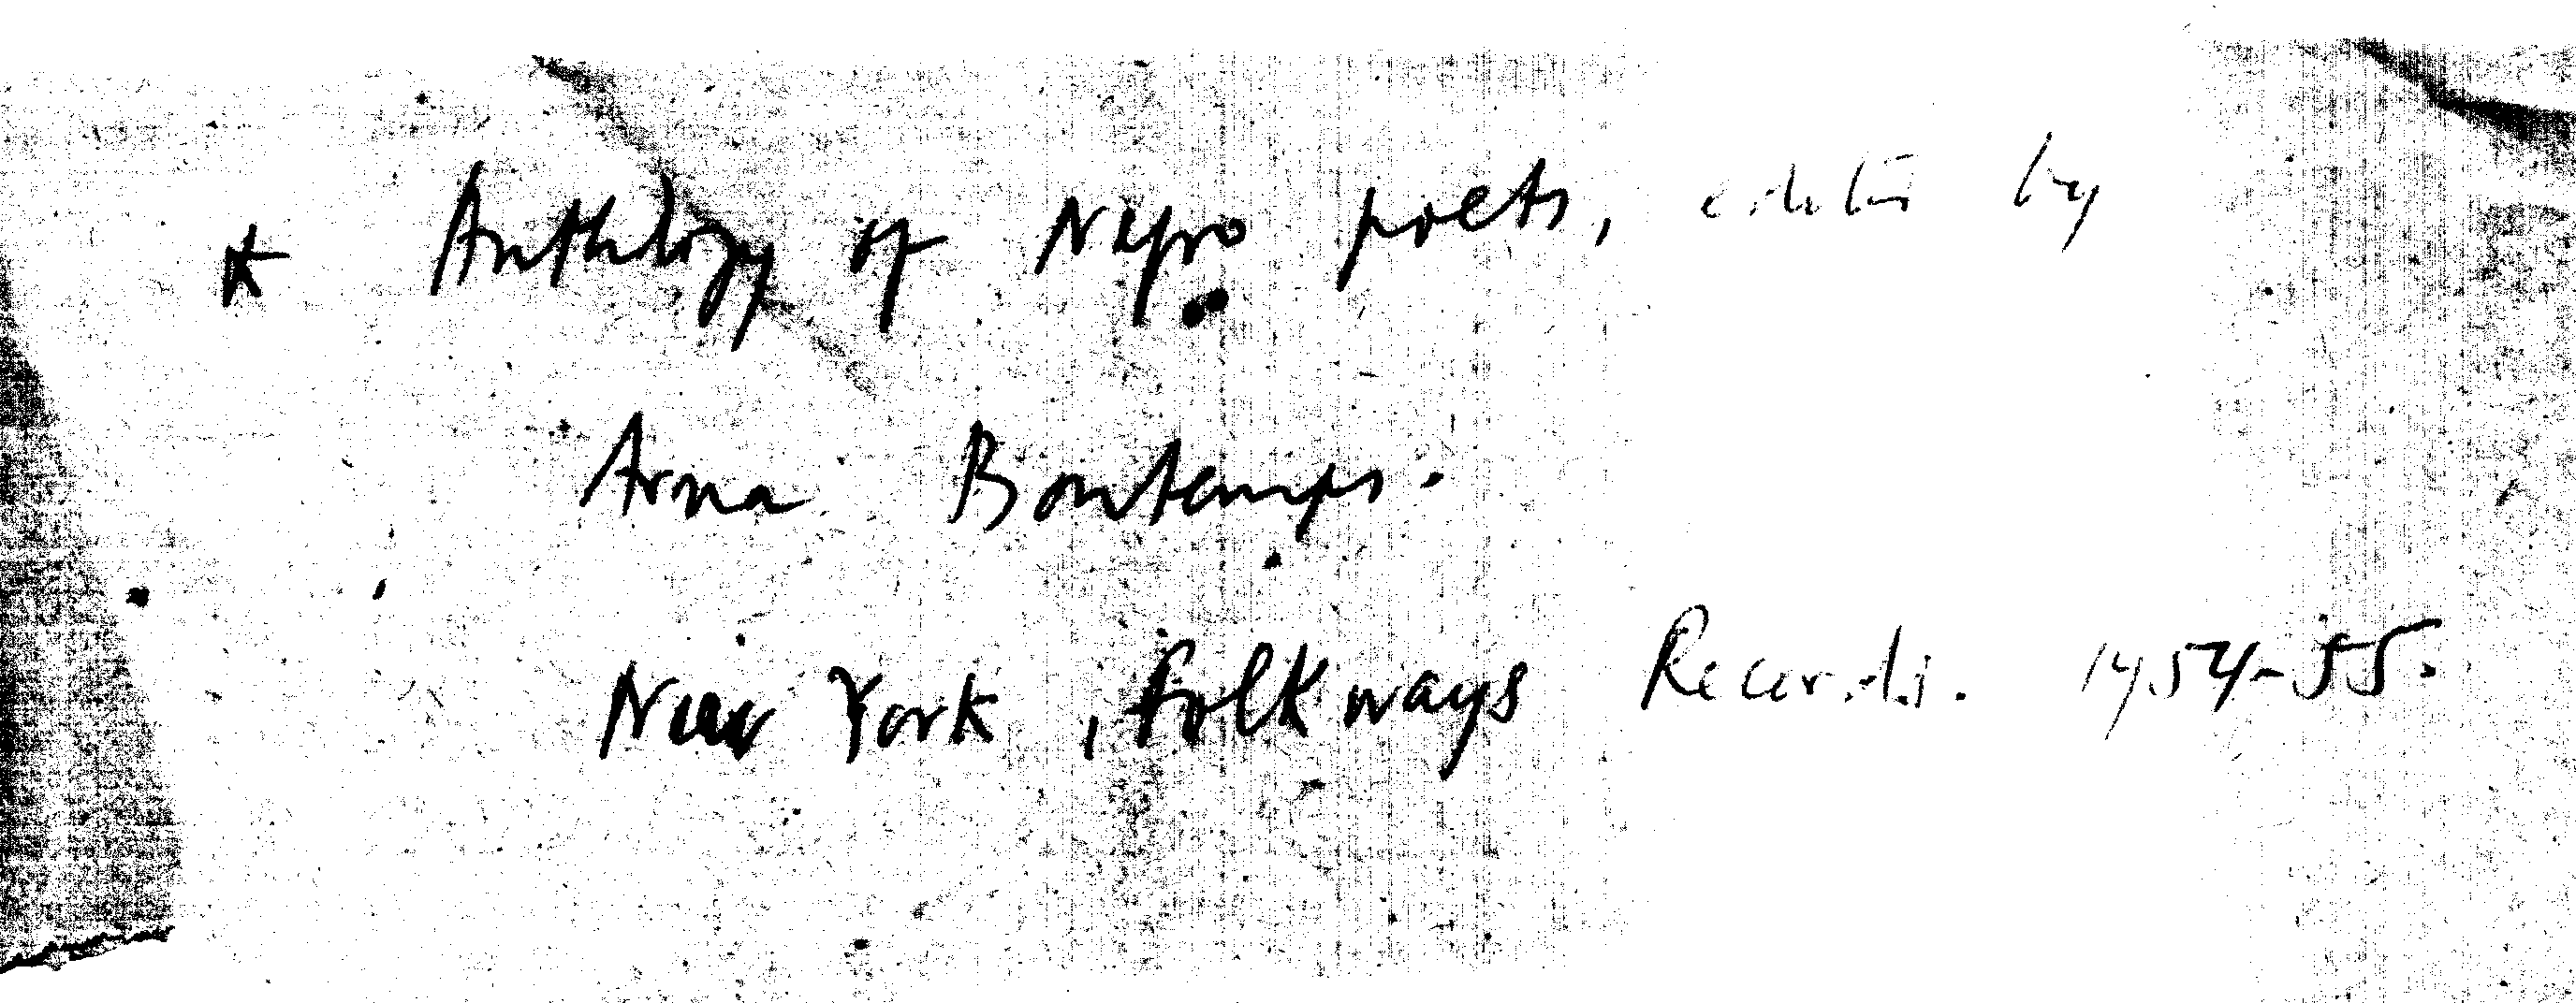 * Anthology of Negro poets, edited by
Arna Bontemps.
New York, Folkways Records. 1954-55.